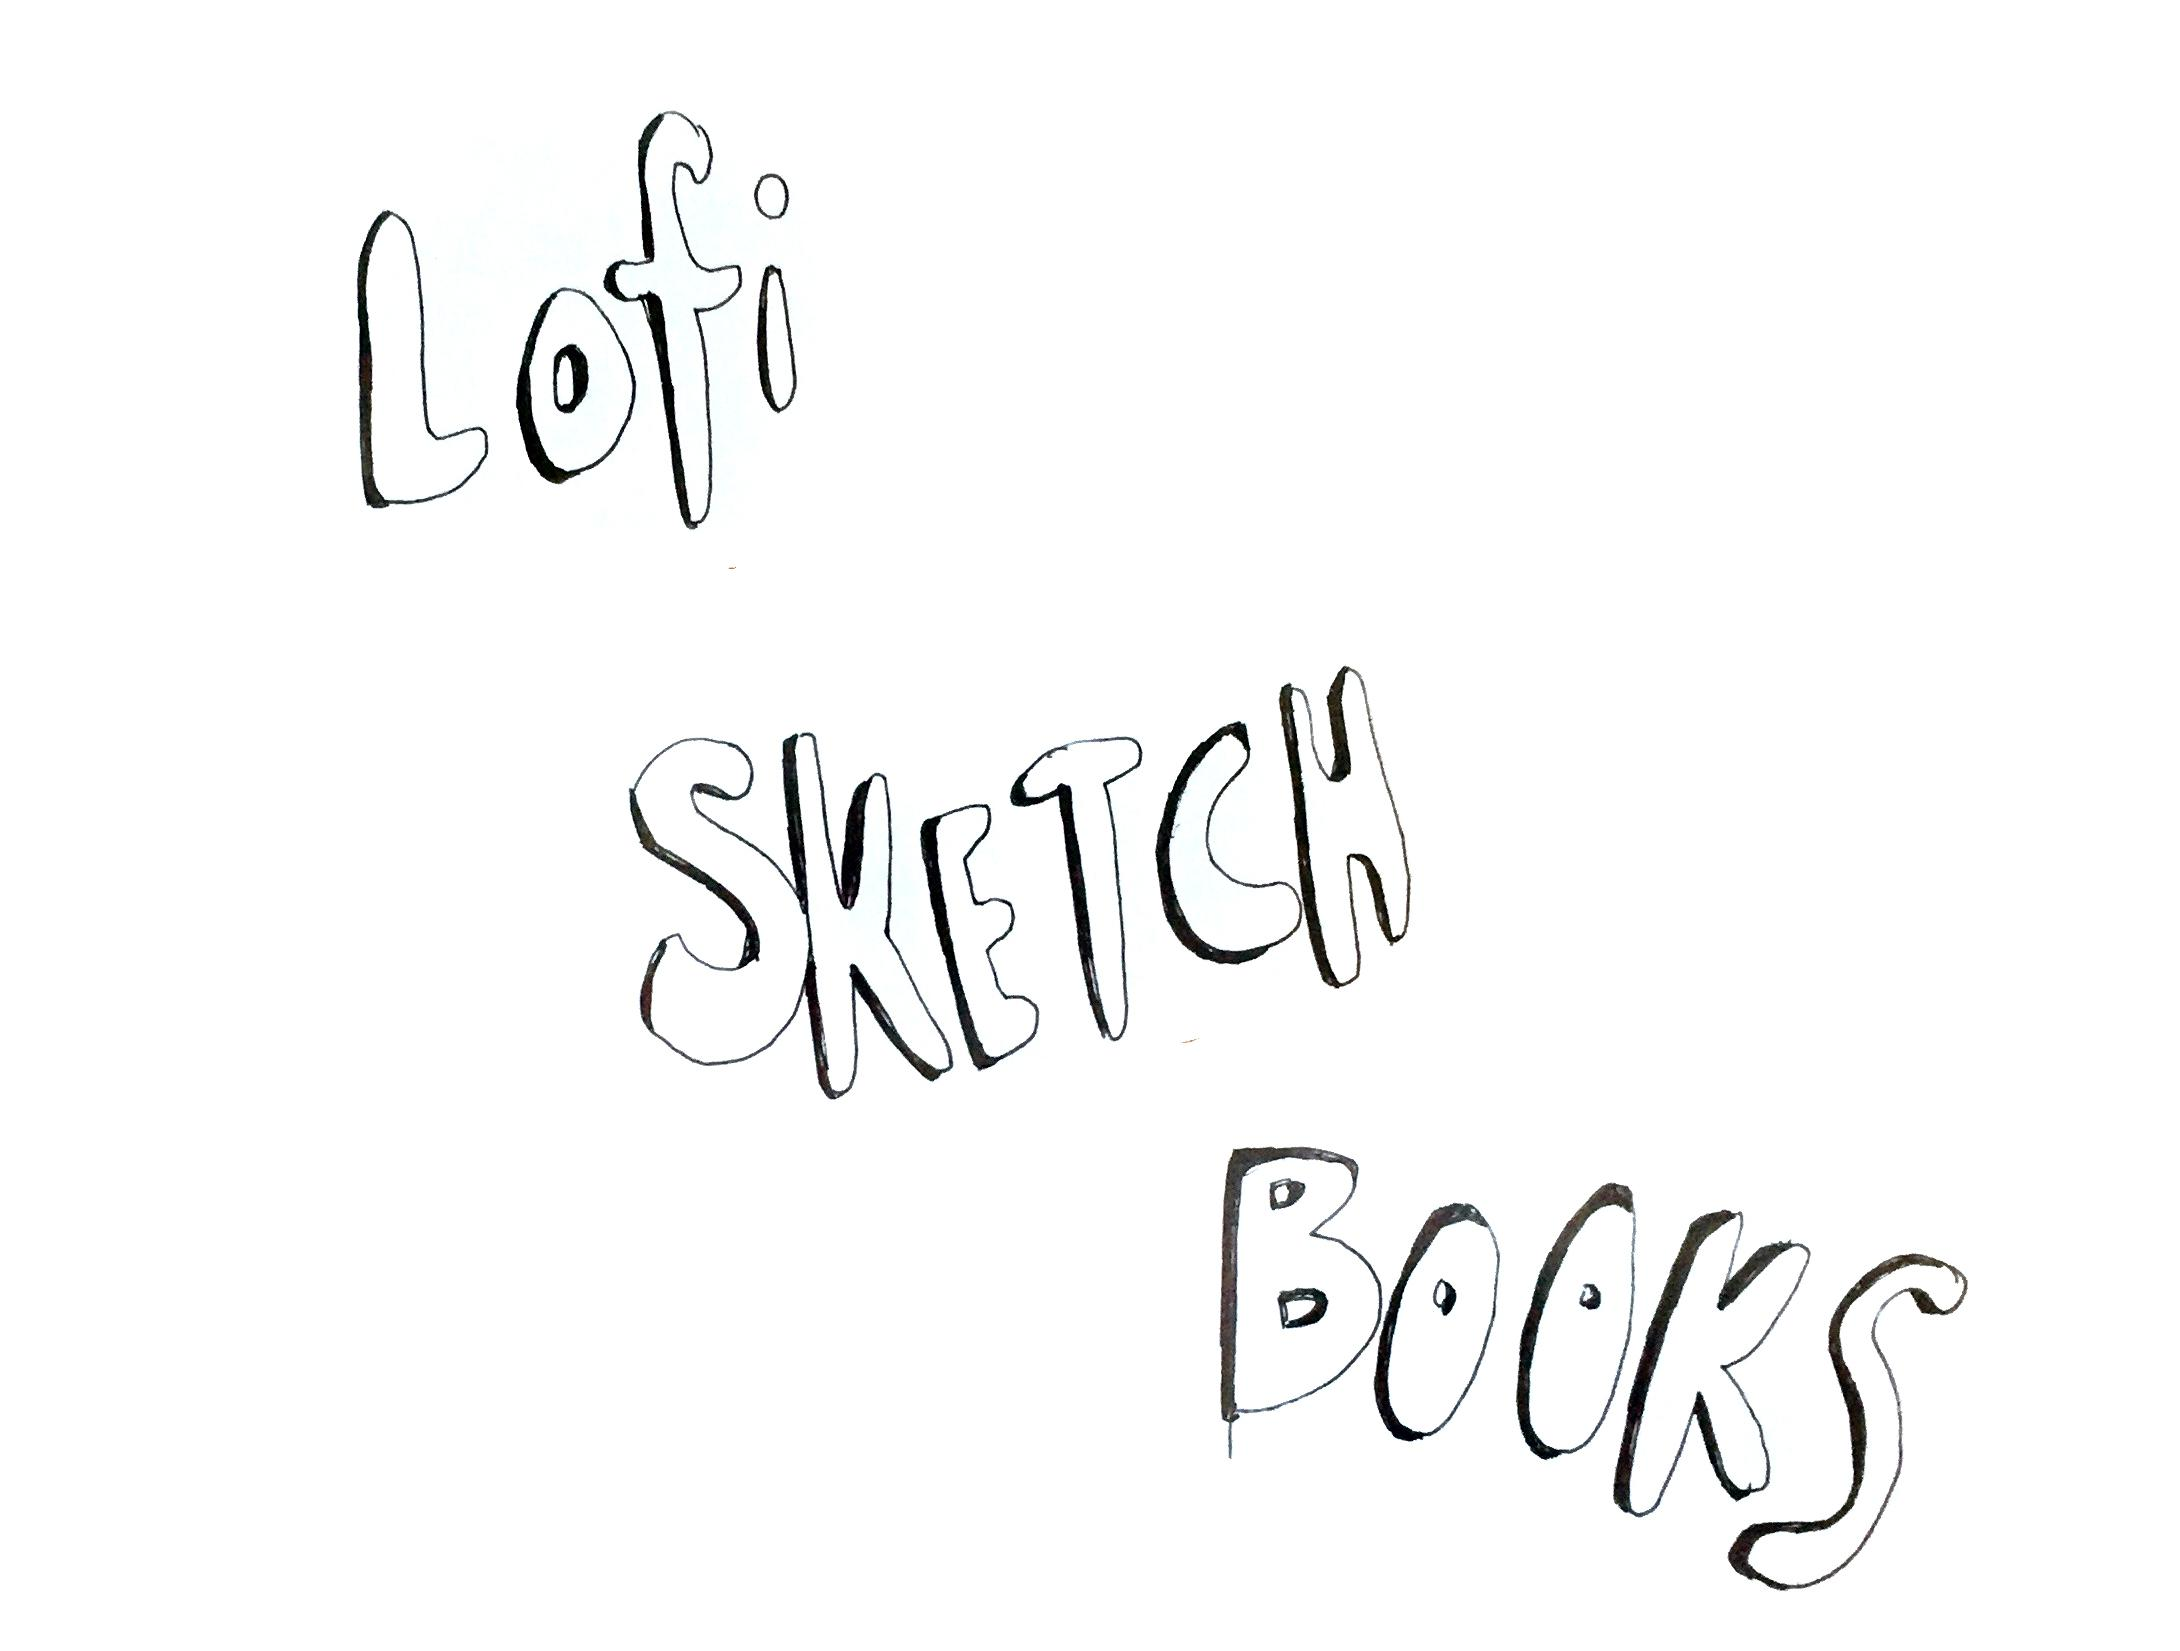 Lofi
SKETCH
BOOKS